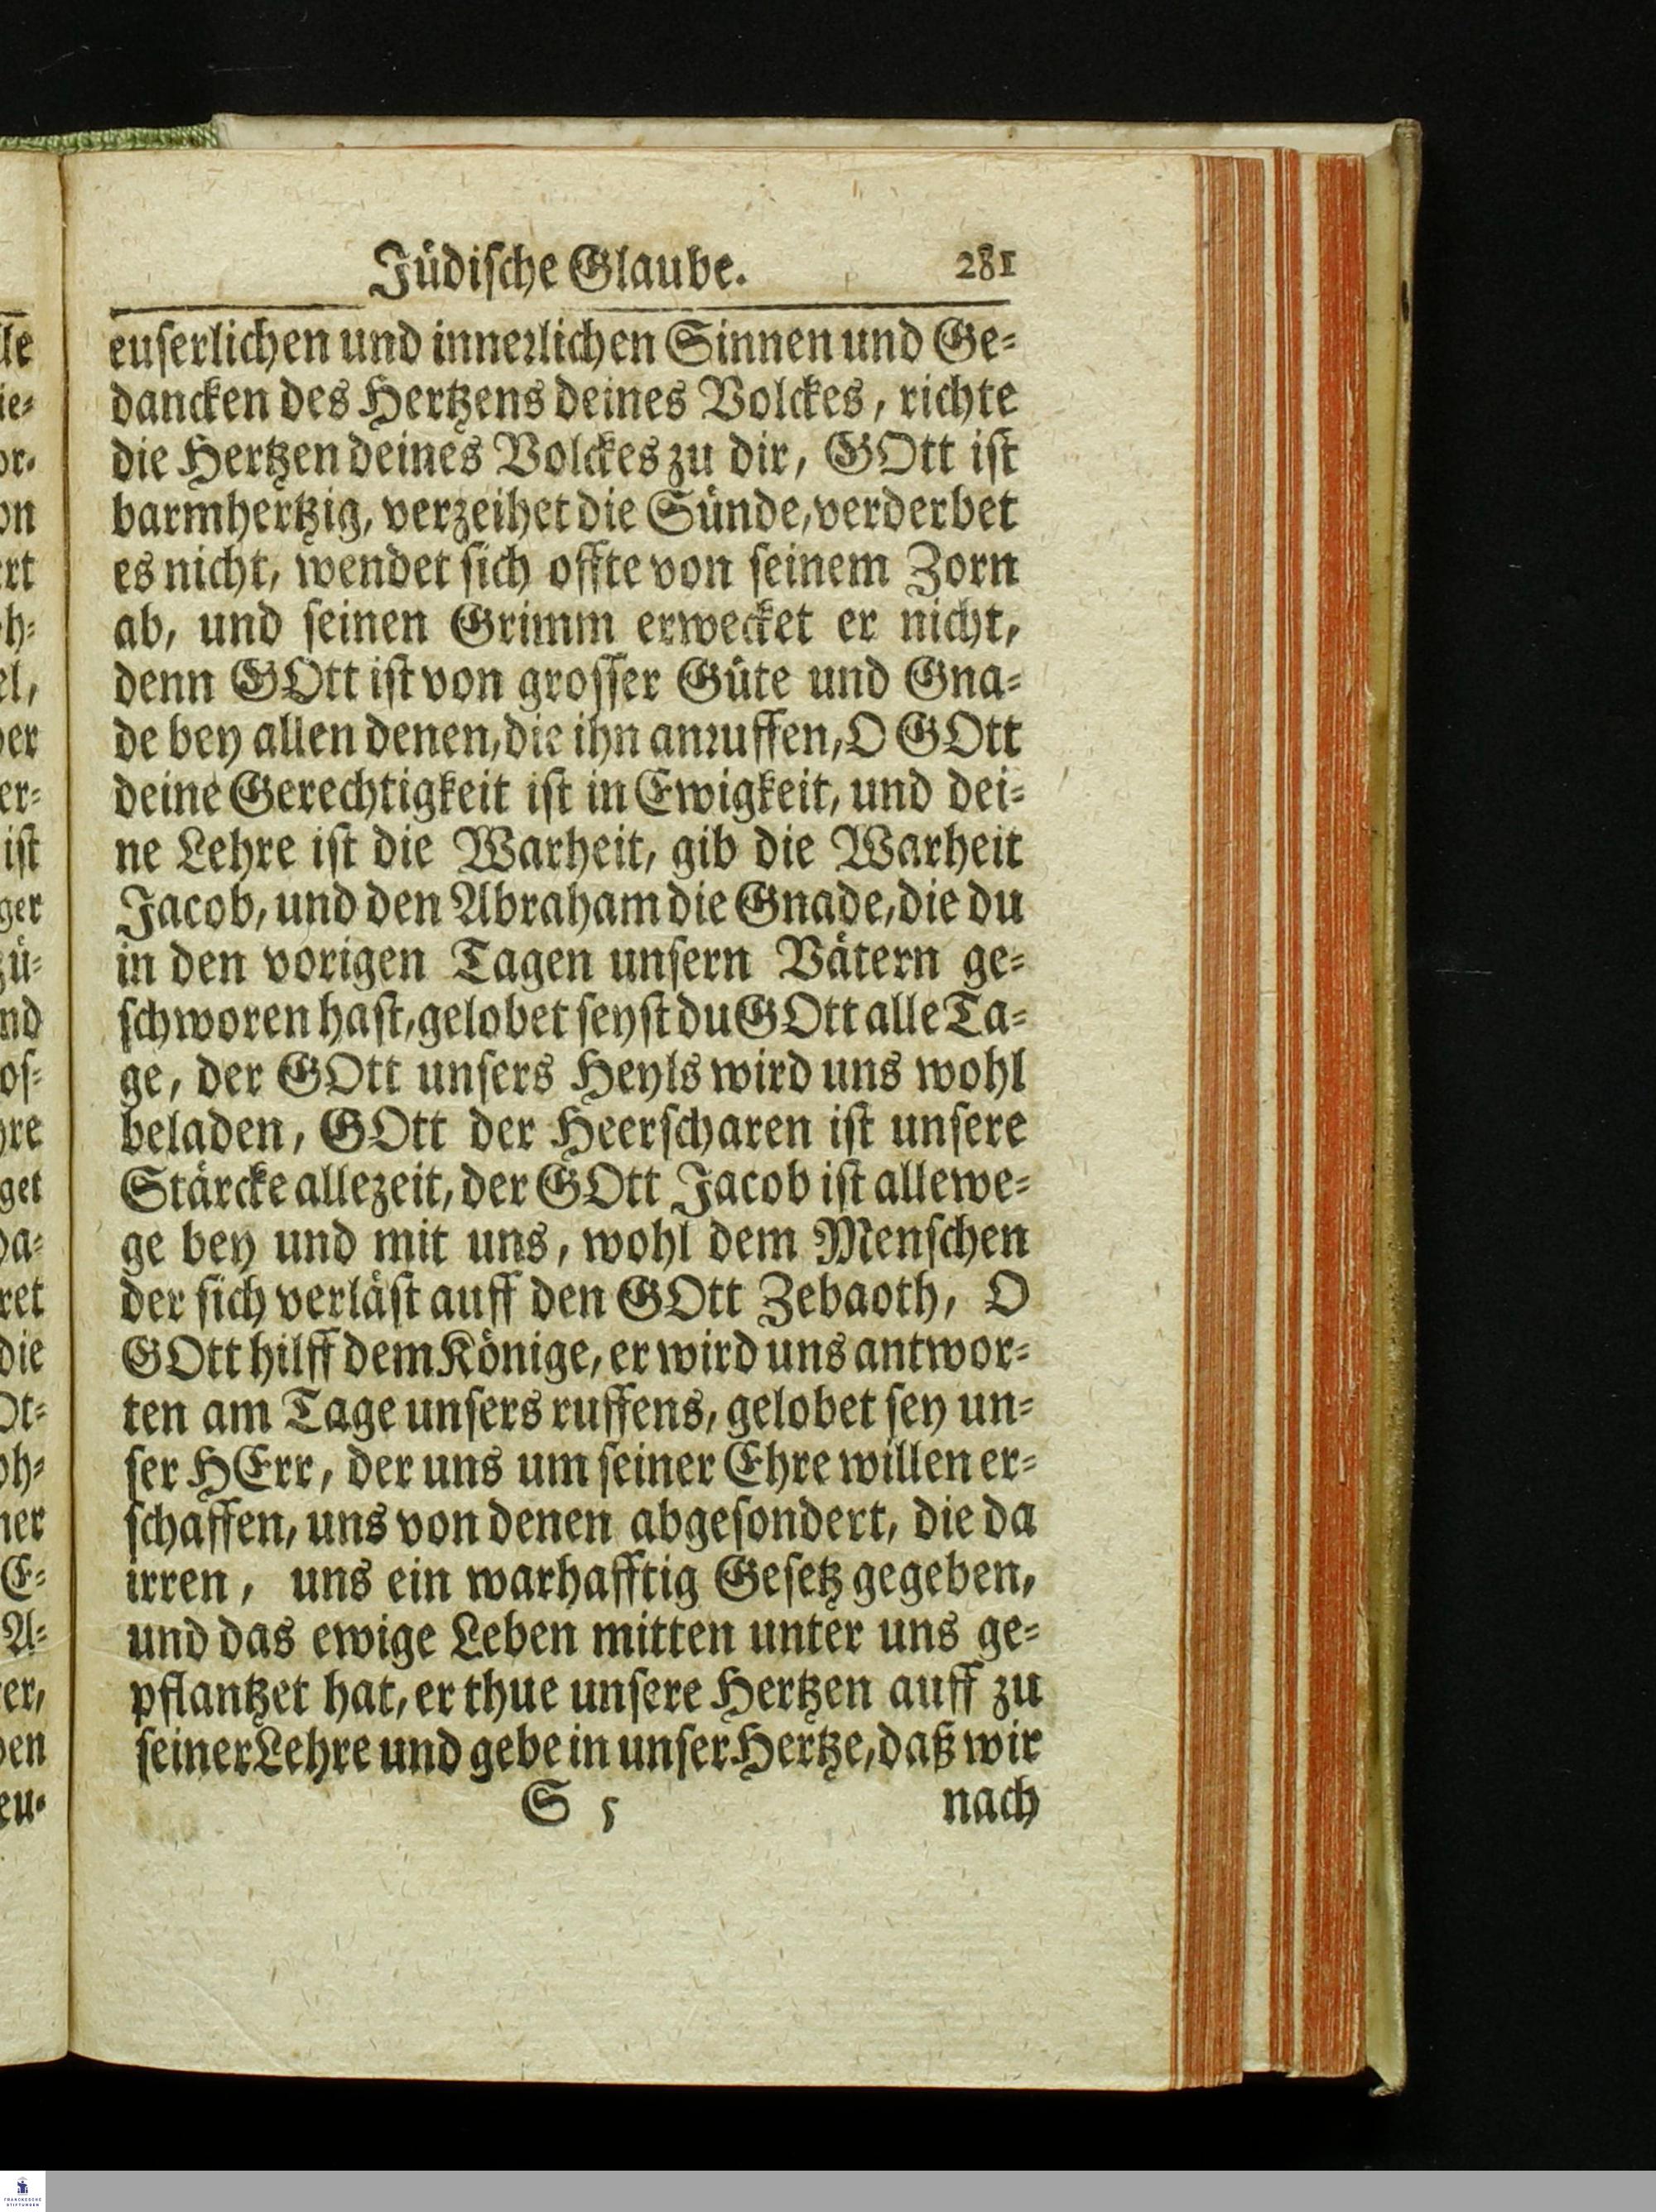 Jüdische Glaube. 281
euserlichen und innerlichen Sinnen und Ge-
dancken des Hertzens deines Volckes, richte
die Hertzen deines Volckes zu dir, GOtt ist
barmhertzig, verzeihet die Sünde, verderbet
es nicht, wendet sich offte von seinem Zorn
ab, und seinen Grimm erwecket er nicht,
denn GOtt ist von grosser Güte und Gna-
de bey allen denen, die ihn anruffen, O GOtt
deine Gerechtigkeit ist in Ewigkeit, und dei-
ne Lehre ist die Warheit, gib die Warheit
Jacob, und den Abraham die Gnade, die du
in den vorigen Tagen unsern Vätern ge-
schworen hast, gelobet seyst du GOtt alle Ta-
ge, der GOtt unsers Heyls wird uns wohl
beladen, GOtt der Heerscharen ist unsere
Stärcke allezeit, der GOtt Jacob ist allewe-
ge bey und mit uns, wohl dem Menschen
der sich verläst auff den GOtt Zebaoth, O
GOtt hilff dem Könige, er wird uns antwor-
ten am Tage unsers ruffens, gelobet sey un-
ser HErr, der uns um seiner Ehre willen er-
schaffen, uns von denen abgesondert, die da
irren, uns ein warhafftig Gesetz gegeben,
und das ewige Leben mitten unter uns ge-
pflantzet hat, er thue unsere Hertzen auff zu
seiner Lehre und gebe in unser Hertze, daß wir
S 5 nach
FRANCKESCHE
STIFTUNGEN